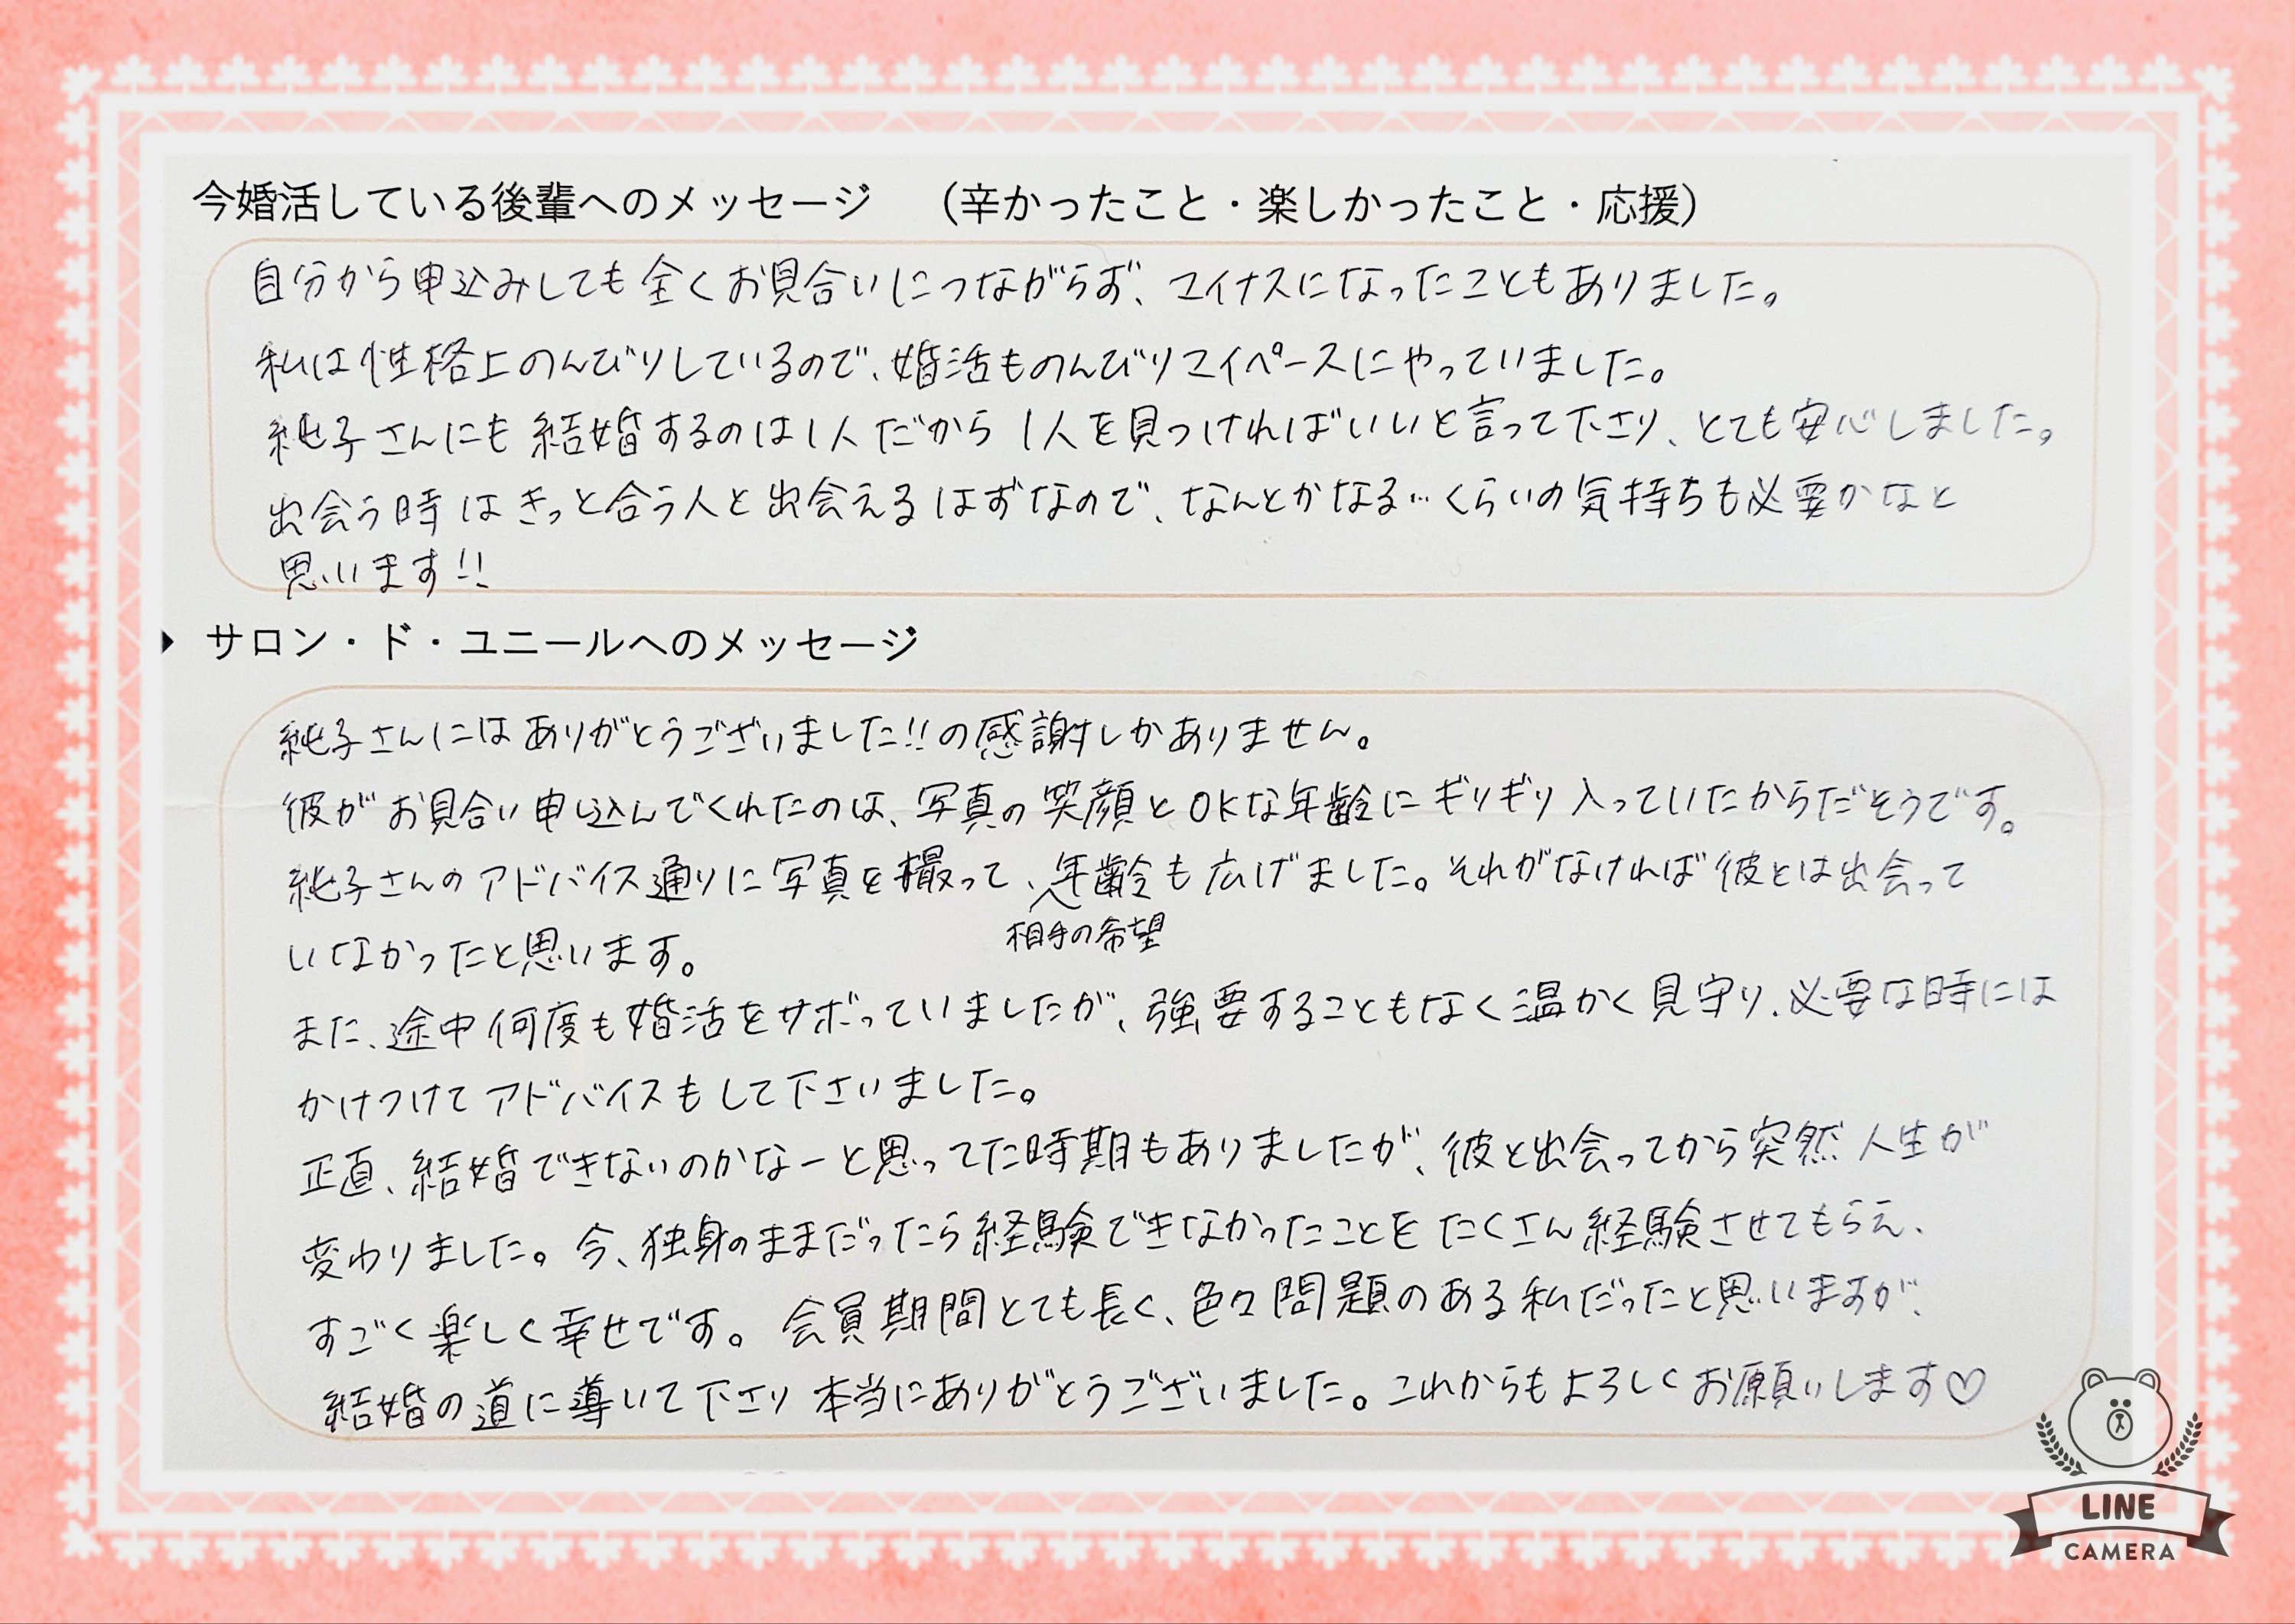 今婚活している後輩へのメッセージ　（辛かったこと・楽しかったこと・応援）
自分から申込みしても全くお見合いにつながらず、マイナスになったこともありました。
私は性格上のんびりしているので、婚活ものんびりマイペースにやっていました。
純子さんにも結婚するのは1人だから1人を見つければいいと言って下さり、とても安心しました。
出会う時はきっと合う人と出会えるはずなので、なんとかなる…くらいの気持ちも必要かなと
思います!!
サロン・ド・ユニールへのメッセージ
純子さんにはありがとうございました!!の感謝しかありません。
彼がお見合い申し込んでくれたのは、写真の笑顔とOKな年齢にギリギリ入っていたからだそうです。
純子さんのアドバイス通りに写真を撮って、年齢も広げました。それがなければ彼とは出会って
相手の希望
いなかったと思います。
また、途中何度も婚活をサボっていましたが、強要することもなく温かく見守り、必要な時には
かけつけてアドバイスもして下さいました。
正直、結婚できないのかなーと思ってた時期もありましたが、彼と出会ってから突然人生が
変わりました。今、独身のままだったら経験できなかったことをたくさん経験させてもらえ、
すごく楽しく幸せです。会員期間とても長く、色々問題のある私だったと思いますが、
結婚の道に導いて下さり本当にありがとうございました。これからもよろしくお願いします♡
LINE
CAMERA